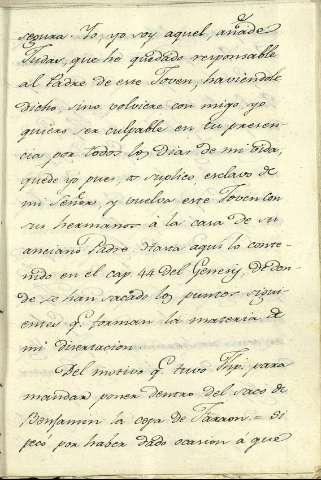 segura. Yo, yo soy aquel, añade
Judas, que hé quedado responsable
al Padre de este Joven, haviendole
dicho, sino volviere con migo, yo
quiero ser culpable en tu presen-
cia por todos los dias de mi vida,
quede yo pues, os suplico esclavo de
mi Señor, y vuelva este Joven con
sus hermanos à la casa de su
anciano Padre. Hasta aqui lo conte-
nido en el cap. 44 del Genesis, de don-
de se han sacado los puntos sigui-
entes q.e forman la materia de
mi disertacion.
Del motivo q.e tuvo para
mandar poner dentro del saco de
Benjamin la copa de Faraon = Si
pecó por haber dado ocasion à que